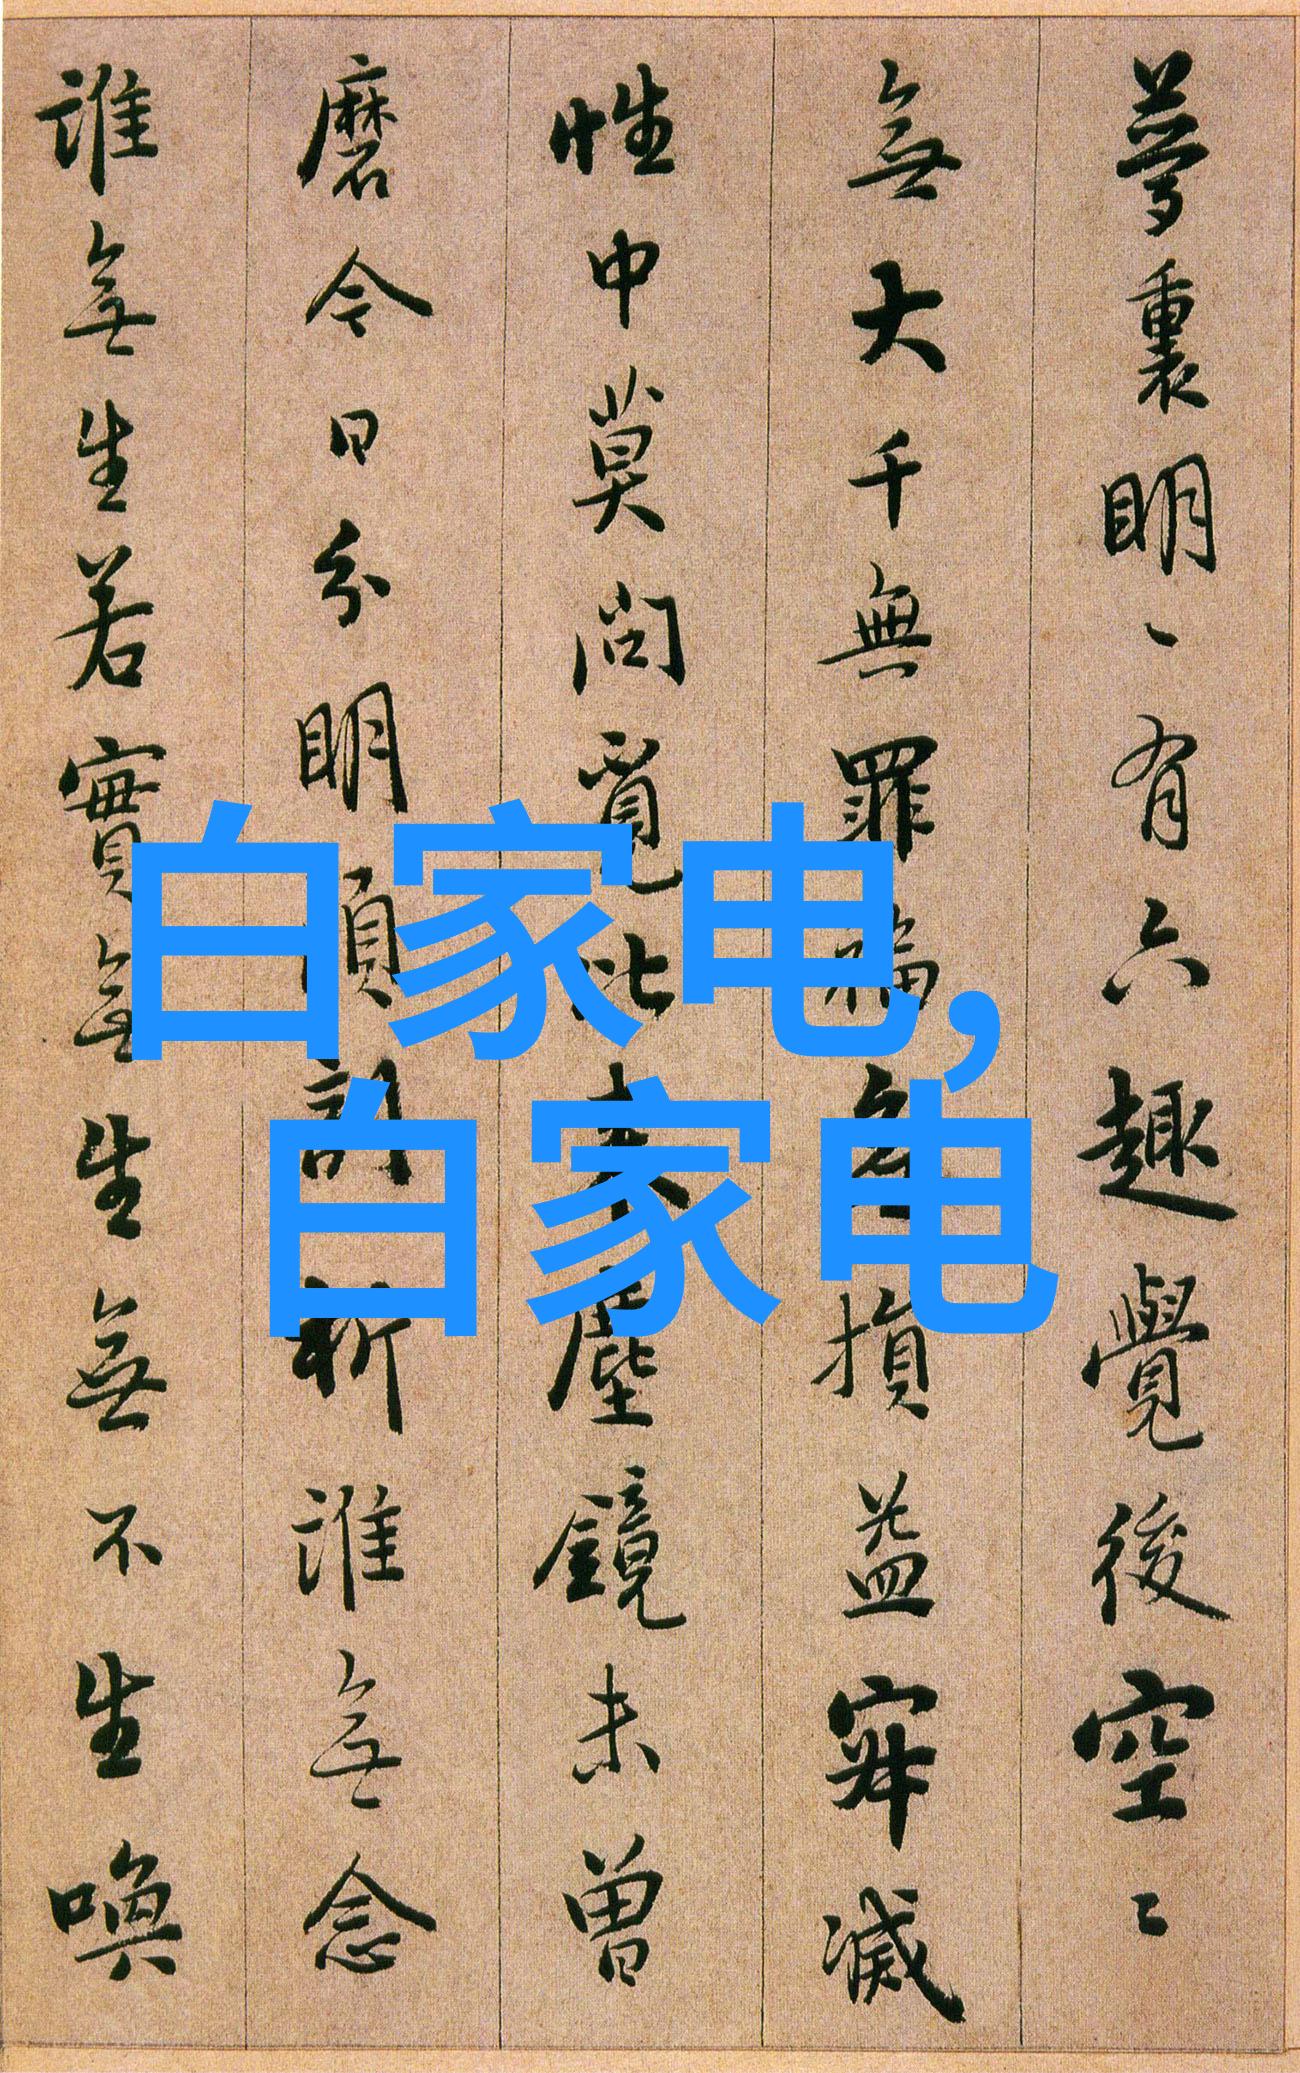 夢裏明〻有六趣覺後空〻
無大千無罪福無損益寂滅
性中莫問覓比來塵鏡未曾
磨今日分明須剖析誰無念
誰無生若實無生無不生喚
白家电,
白家电